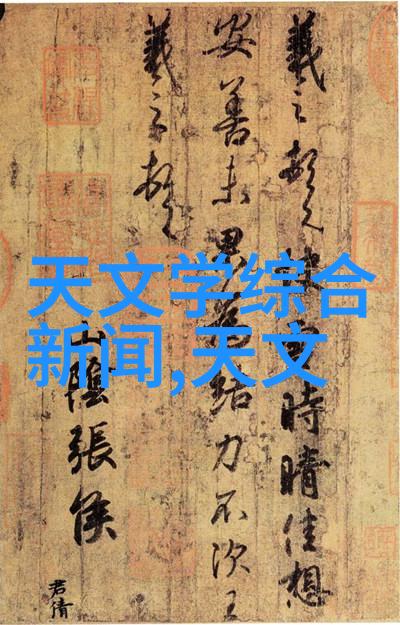 羲之頓首快雪時晴佳想
安善未果為結力不次王
羲之頓首
山陰張侯
君倩
天文学综合
新闻,天文